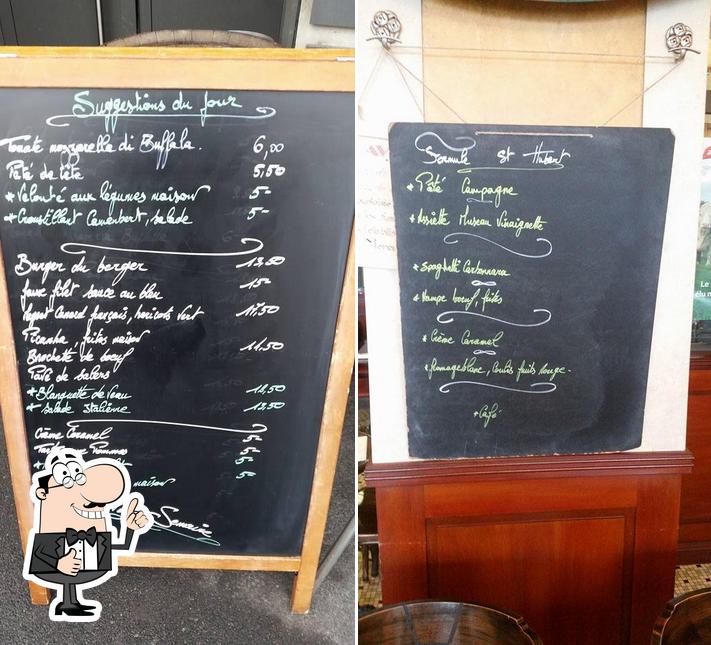 Suggestions du jour
Tomate mozzarella di Buffala. 6,00
Pâté de tête 5,50
* Velouté aux légumes maison 5-
* Croustillant Camembert, salade 5-
Burger du berger 13,50
faux filet sauce au bleu 15-
Canard français, haricots vert 17,50
Picanha, frites maison
Brochette de boeuf 11,50
Pavé de salers
* Blanquette de Veau 12,50
* Salade Italienne 12,50
Crème Caramel 5-
Pommes 5-
5-
5-
maison
Semaine
Formule St Hubert
* Pâté Campagne
* Assiette Museau Vinaigrette
* Spaghetti Carbonnara
* boeuf, frites
* Crème Caramel
* fromage blanc, Coulis fruits rouge.
* Café
Le